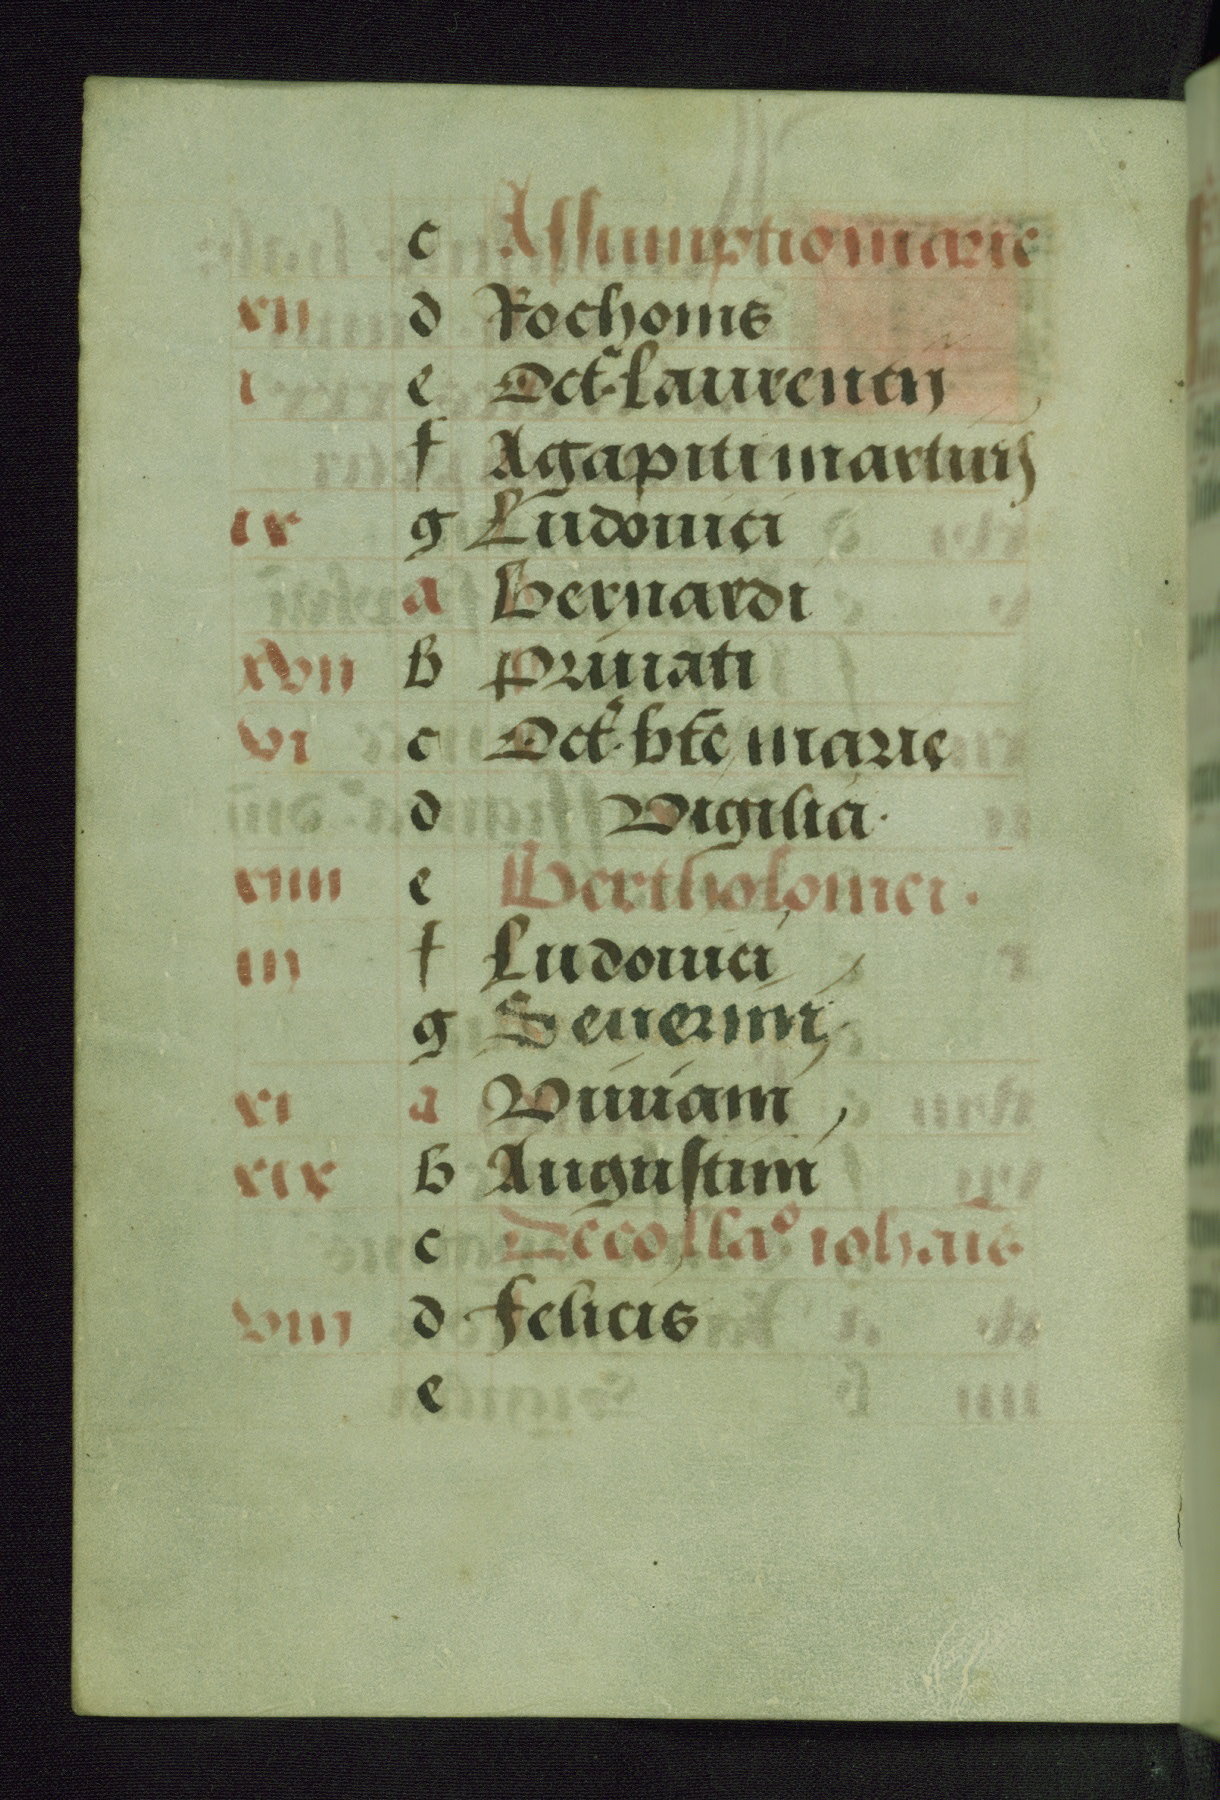 c Assumptio marie
xii d Rochonis
i e Oct. laurencij
f Agapiti martiris
ix g Ludouici
a Bernardi
xvii b Priuati
vi c Oct. bte marie
d Vigilia.
xiiii e Bertholomei.
iii f Ludouici
g Seuerini
xi a Viuiani
xix b Augustini
c Decollao iohanis
viii d felicis
e